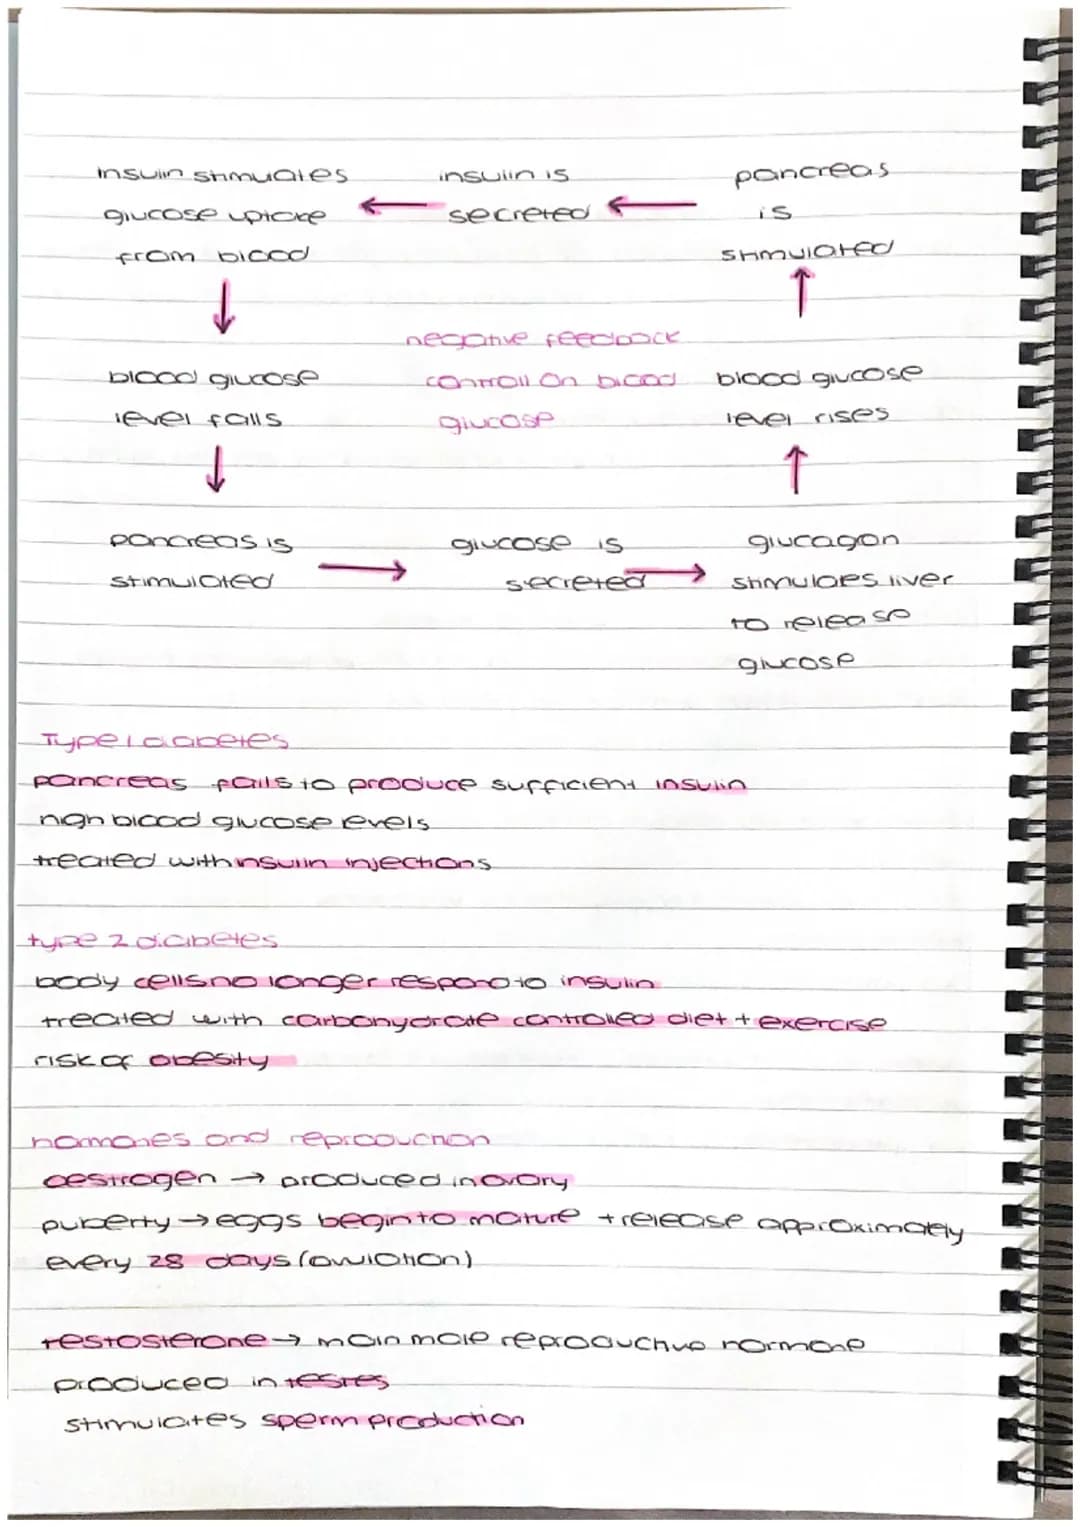 insulin stimulates insulin is pancreas
glucose uptake ← secreted ← is
from blood stimulated
↓ ↑
negative feedback
blood glucose controll on blood blood glucose
level falls glucose level rises
↓ ↑
pancreas is glucose is glucagon
stimulated → secreted → stimulaes liver
to release
glucose
Type 1 diabetes
pancreas fails to produce sufficient insulin
high blood glucose levels
treated with insulin injections
type 2 diabetes
body cells no longer respond to insulin
treated with carbohydrate controlled diet + exercise
risk of obesity
hormones and reproduction
oestrogen → produced in ovary
puberty → eggs begin to mature + release approximately
every 28 days (ovulation)
testosterone → main male reproductive hormone
produced in testes
stimulates sperm production